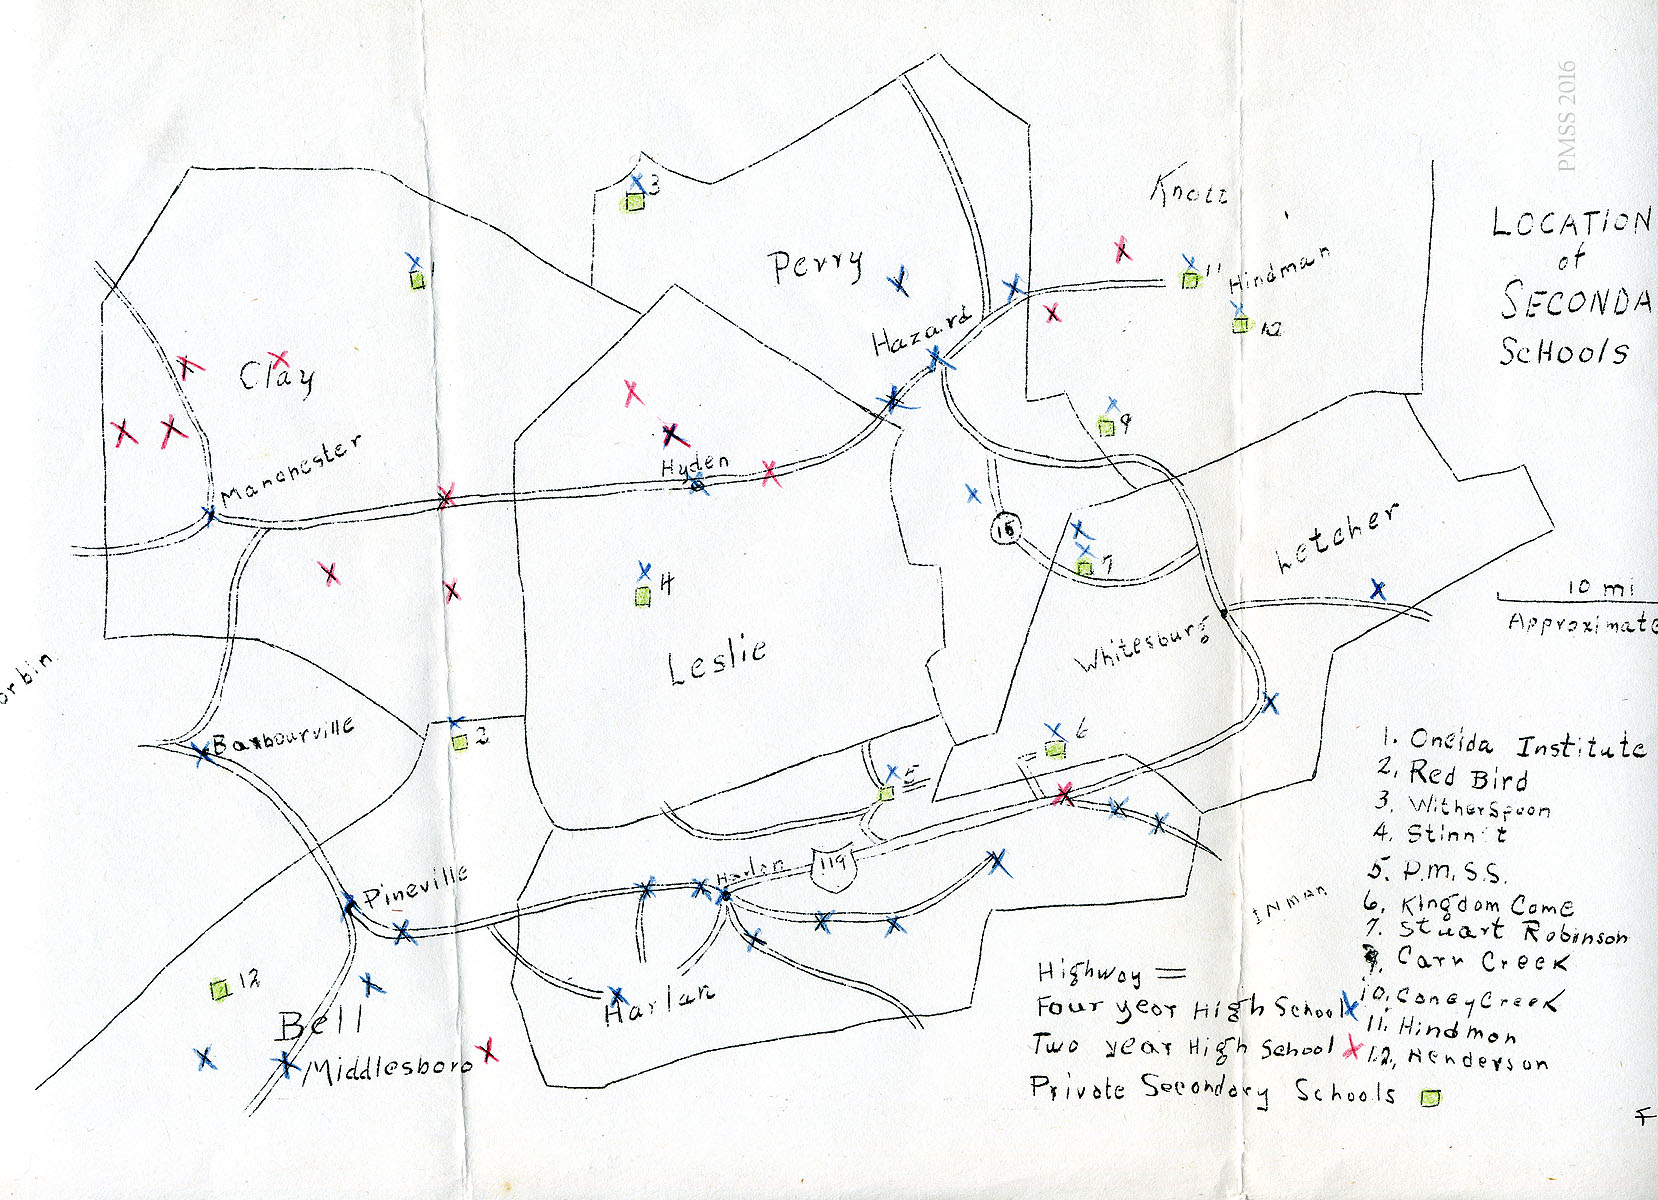 PMSS 2016
LOCATION
of
SECONDA
SCHOOLS
Knott
3
Perry
11
Hindman
12
Hazard
Clay
9
Manchester
Hyden
15
7
Letcher
4
10 mi
Approximate
Whitesburg
Leslie
orbin
Barbourville
2
6
5
1. Oneida Institute
2. Red Bird
3. Witherspoon
4. Stinn t
5. P.M.S.S.
6. Kingdom Come
7. Stuart Robinson
9. Carr Creek
10. Caney Creek
11. Hindmon
12. Henderson
Harlan
119
Pineville
INman
12
Bell
Harlan
Middlesboro
Highway =
Four year High School X
Two year High School X
Private Secondary Schools